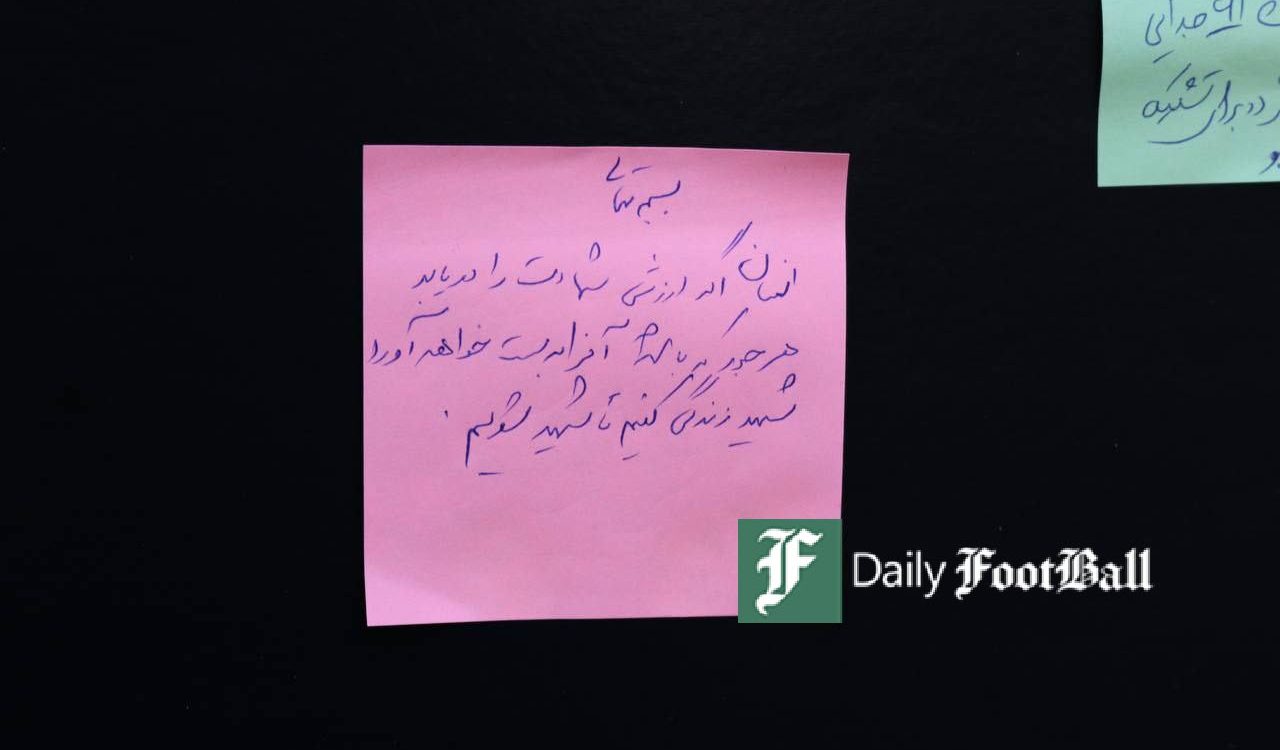 بسمه تعالی
انسان اگر ارزش شهادت را دریابد
هر جور که با بهاء آنرا بدست خواهد آورد
شهید زندگی کنیم تا شهید شویم.
جدایی
برای تشکیه
Daily FootBall